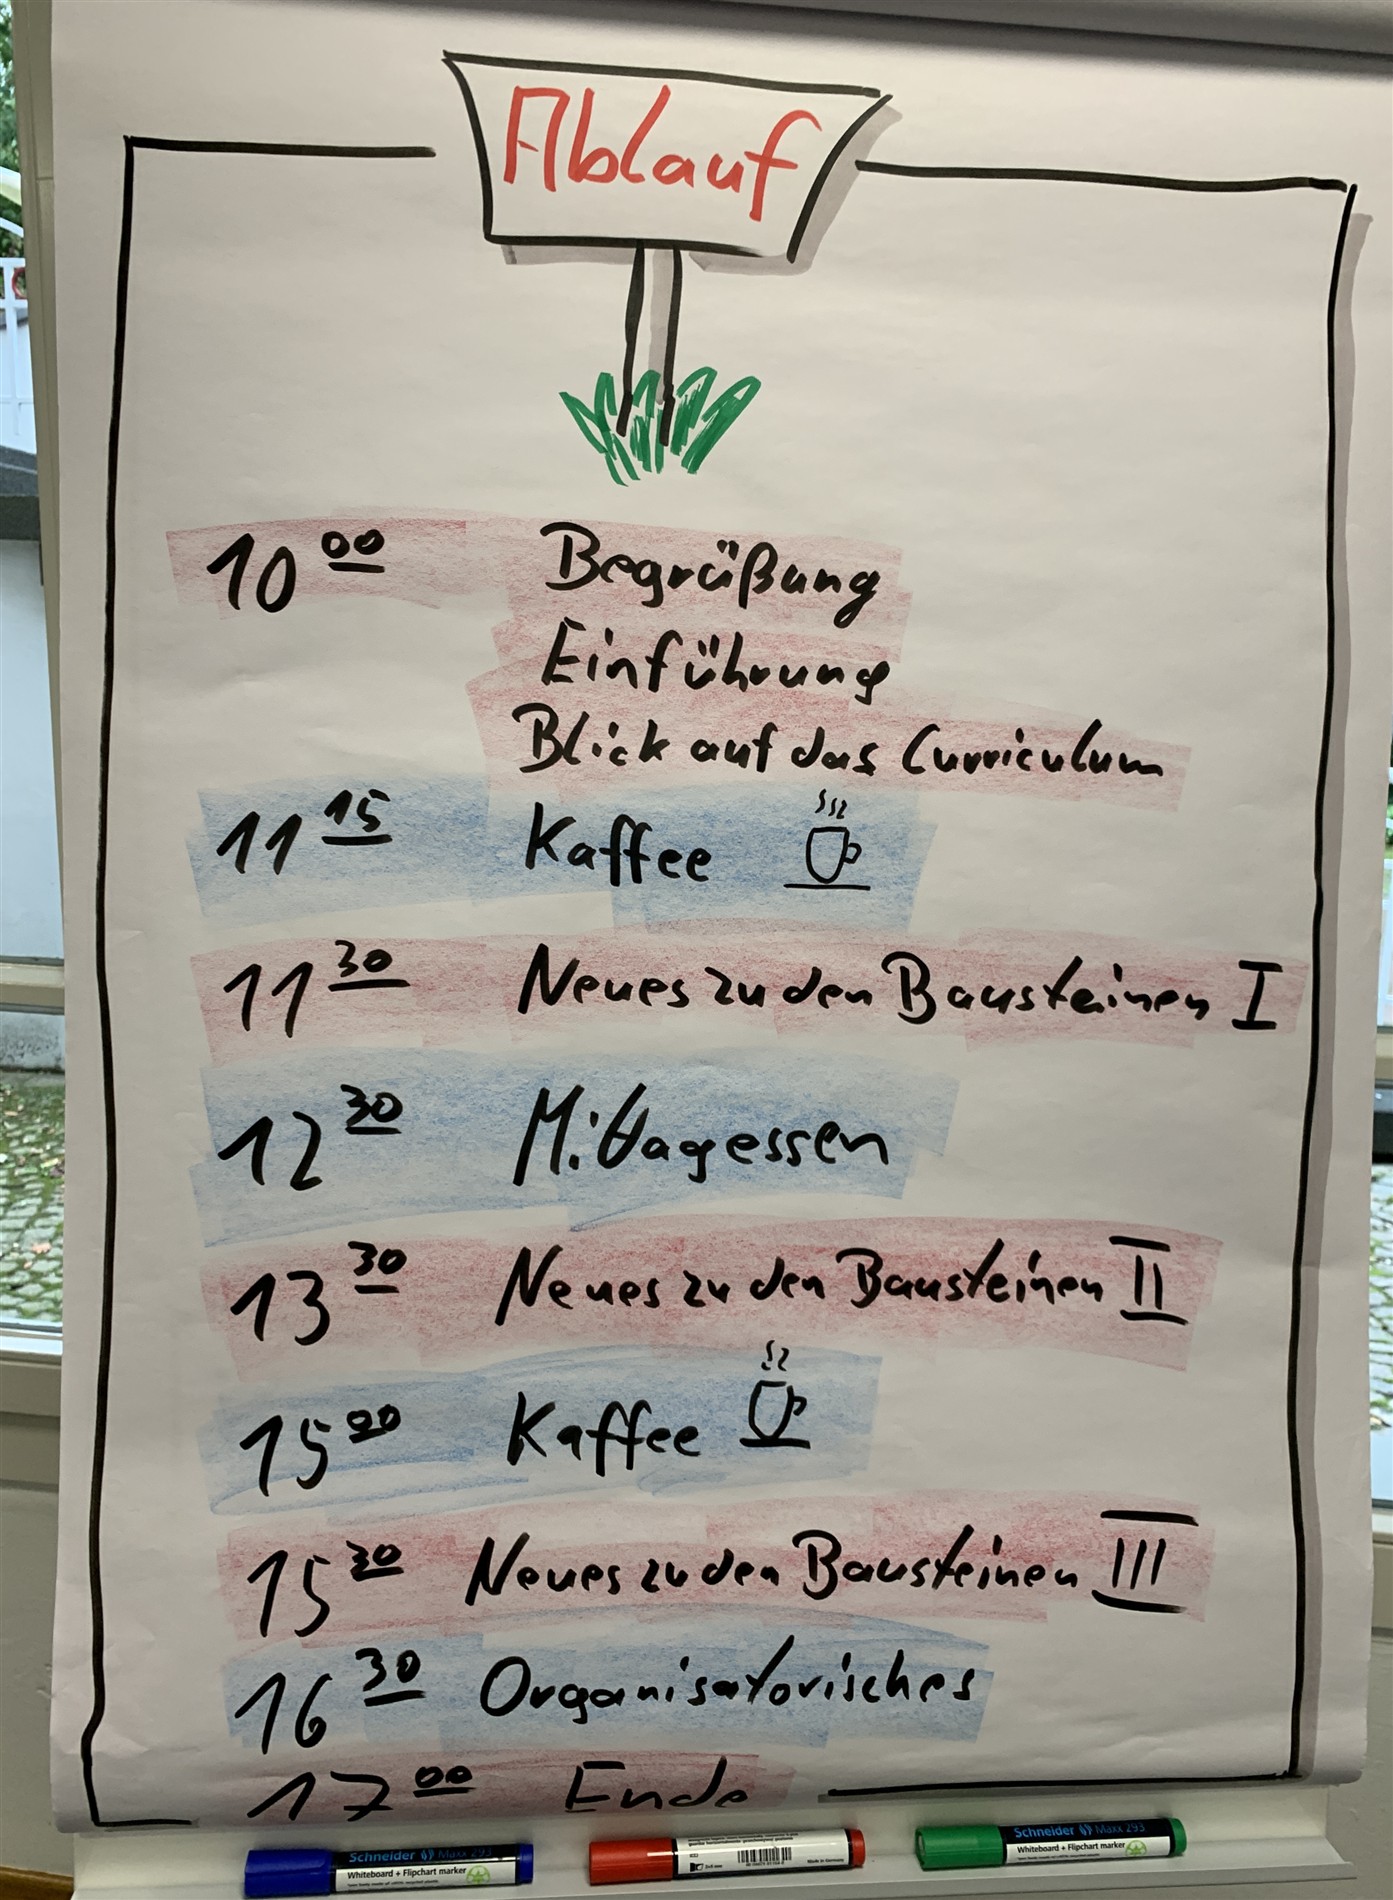 Ablauf
10 00 Begrüßung
Einführung
Blick auf das Curriculum
11 15 Kaffee
11 30 Neues zu den Bausteinen I
12 30 Mittagessen
13 30 Neues zu den Bausteinen II
15 00 Kaffee
15 30 Neues zu den Bausteinen III
16 30 Organisatorisches
17 00 Ende
Schneider Maxx 293
Whiteboard + Flipchart marker
Made in Germany
Schneider Maxx 293
Whiteboard + Flipchart marker